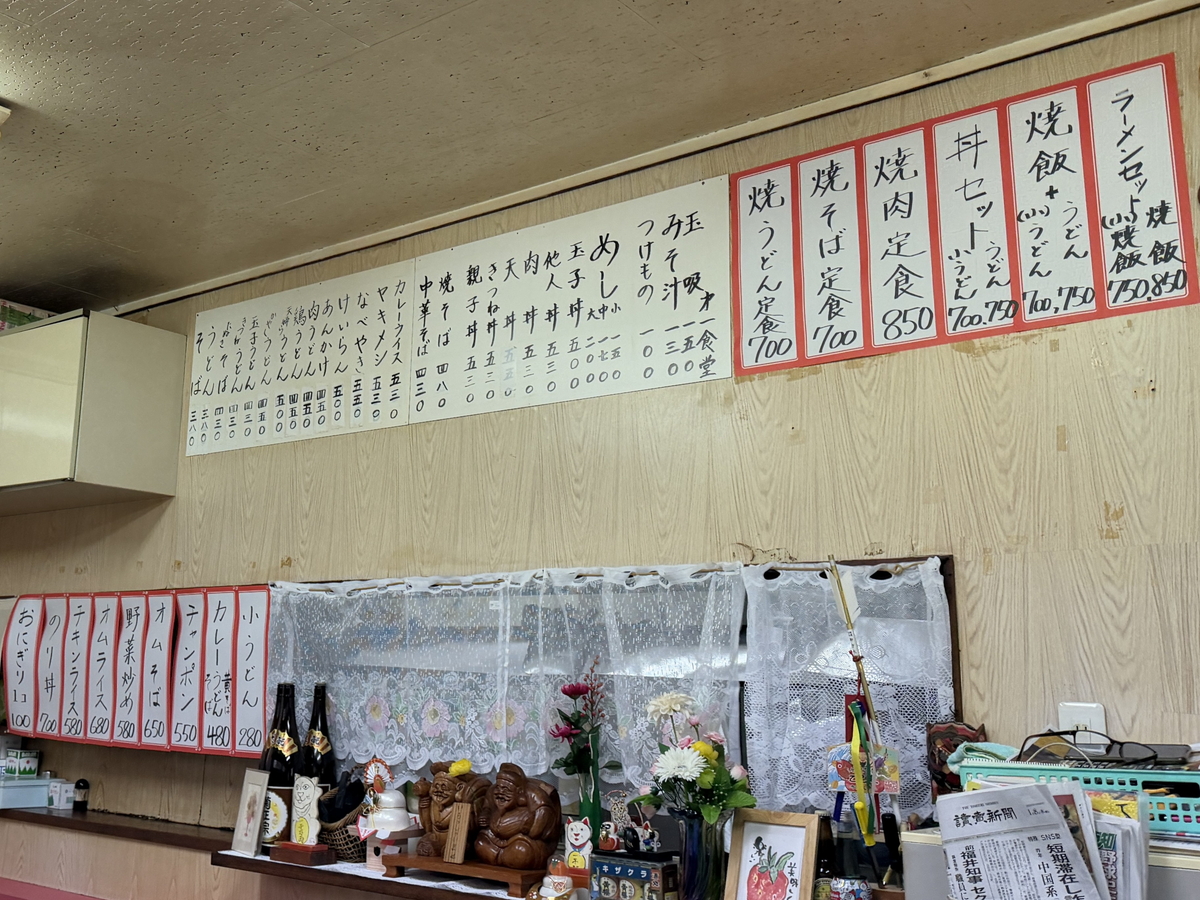 ラーメンセット 焼飯 (小)焼飯 750,850
焼飯+うどん (小)うどん 700,750
丼セット うどん 小うどん 700.750
焼肉定食 850
焼そば定食 700
焼うどん定食 700
食堂
玉吸 一五〇
みそ汁 一三〇
つけもの 一〇〇
めし 小 一五〇
中 一七〇
大 二〇〇
玉子丼 五〇〇
他人丼 五三〇
肉丼 五三〇
天丼 五五〇
きつね丼 五三〇
親子丼 五三〇
焼そば 四八〇
中華そば 四三〇
カレーライス 五三〇
ヤキメシ 五三〇
なべやき 五五〇
けいらん 五〇〇
あんかけ 四五〇
肉うどん 四五〇
鶏うどん 四五〇
うどん 三八〇
そば 三八〇
小うどん 280
カレーうどん 黄そば そば 480
チャンポン 550
オムそば 650
野菜炒め 580
オムライス 680
チキンライス 580
のり丼 700
おにぎり1コ 100
キザクラ
讀賣新聞
短期滞在し詐
中国系
前福井知事セク